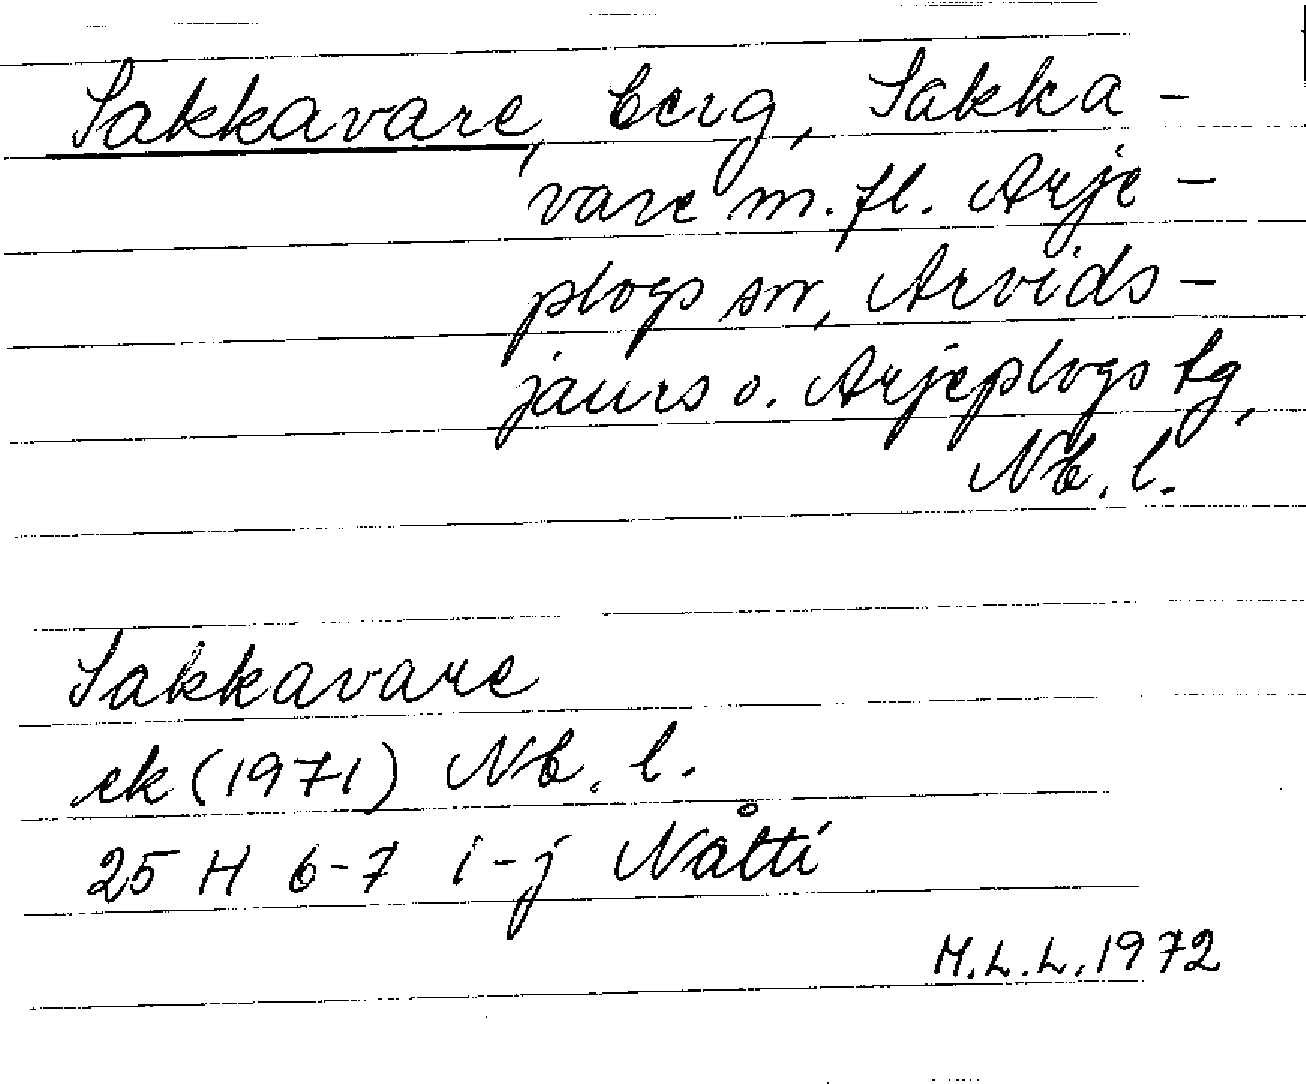 Sakkavare, berg, Sakka-
vare m.fl. Arje-
plogs sn, Arvids-
jaurs o. Arjeplogs tg,
Nb. l.
Sakkavare
ek (1971) Nb. l.
25 H 6-7 i-j Nåtti
M.L.L. 1972